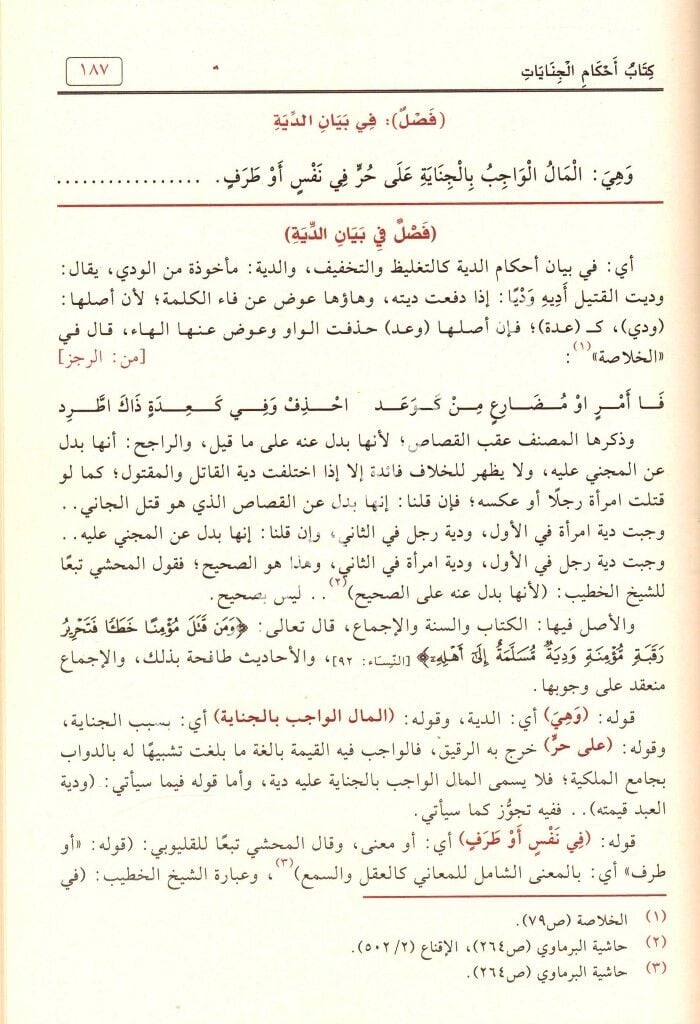 كِتَابُ أَحْكَامِ الْجِنَايَاتِ
١٨٧
(فَصْلٌ): فِي بَيَانِ الدِّيَةِ
وَهِيَ: الْمَالُ الْوَاجِبُ بِالْجِنَايَةِ عَلَى حُرٍّ فِي نَفْسٍ أَوْ طَرَفٍ. ................
(فَصْلٌ فِي بَيَانِ الدِّيَةِ)
أي: في بيان أحكام الدية كالتغليظ والتخفيف، والدية: مأخوذة من الودي، يقال:
وديت القتيل أَدِيهِ وَدْيًا: إذا دفعت ديته، وهاؤها عوض عن فاء الكلمة؛ لأن أصلها:
(ودي)، كـ (عدة)؛ فإن أصلها (وعد) حذفت الواو وعوض عنها الهاء، قال في
«الخلاصة»(١): [من: الرجز]
فَا أَمْرٍ اوْ مُضَارِعٍ مِنْ كَوَعَد احْذِفْ وَفِي كَعِدَةٍ ذَاكَ اطَّرِد
وذكرها المصنف عقب القصاص؛ لأنها بدل عنه على ما قيل، والراجح: أنها بدل
عن المجني عليه، ولا يظهر للخلاف فائدة إلا إذا اختلفت دية القاتل والمقتول؛ كما لو
قتلت امرأة رجلًا أو عكسه؛ فإن قلنا: إنها بدل عن القصاص الذي هو قتل الجاني..
وجبت دية امرأة في الأول، ودية رجل في الثاني، وإن قلنا: إنها بدل عن المجني عليه..
وجبت دية رجل في الأول، ودية امرأة في الثاني، وهذا هو الصحيح؛ فقول المحشي تبعًا
للشيخ الخطيب: (لأنها بدل عنه على الصحيح)(٢).. ليس بصحيح.
والأصل فيها: الكتاب والسنة والإجماع، قال تعالى: ﴿وَمَن قَتَلَ مُؤْمِنًا خَطَـًٔا فَتَحْرِيرُ
رَقَبَةٍ مُّؤْمِنَةٍ وَدِيَةٌ مُّسَلَّمَةٌ إِلَىٰٓ أَهْلِهِۦٓ﴾ [النِّسَاء: ٩٢]، والأحاديث طافحة بذلك، والإجماع
منعقد على وجوبها.
قوله: (وَهِيَ) أي: الدية، وقوله: (المال الواجب بالجناية) أي: بسبب الجناية،
وقوله: (على حرٍّ) خرج به الرقيق، فالواجب فيه القيمة بالغة ما بلغت تشبيهًا له بالدواب
بجامع الملكية؛ فلا يسمى المال الواجب بالجناية عليه دية، وأما قوله فيما سيأتي: (ودية
العبد قيمته).. ففيه تجوُّز كما سيأتي.
قوله: (فِي نَفْسٍ أَوْ طَرَفٍ) أي: أو معنى، وقال المحشي تبعًا للقليوبي: (قوله: «أو
طرف» أي: بالمعنى الشامل للمعاني كالعقل والسمع)(٣)، وعبارة الشيخ الخطيب: (في
(١) الخلاصة (ص٧٩).
(٢) حاشية البرماوي (ص٢٦٤)، الإقناع (٥٠٢/٢).
(٣) حاشية البرماوي (ص٢٦٤).